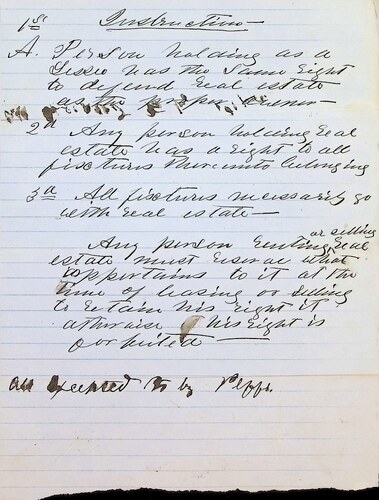 1st Instruction —
A. Person holding as a
Lessee has the same right
to defend real estate
as the proper owner —
2d Any person holding real
estate has a right to all
fixtures thereunto belonging
3d All fixtures necessarily go
with real estate —
or selling
Any person renting real
estate must reserve what
appertains to it at the
time of leasing or selling
to retain his right it
otherwise his right is
forfeited —
all excepted to by Plffs.